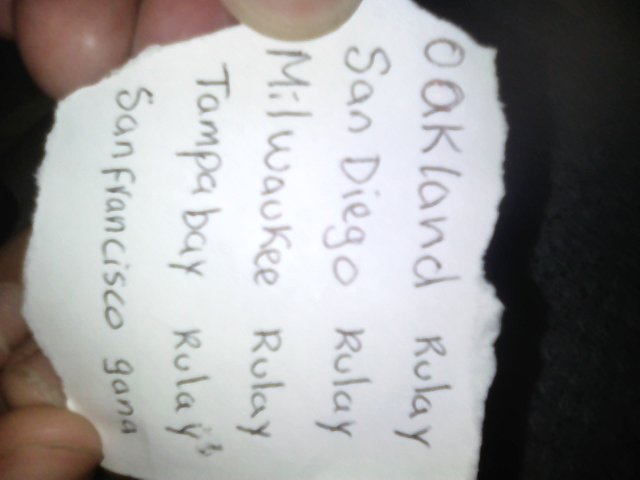 Oakland Rulay
San Diego Rulay
Milwaukee Rulay
Tampabay Rulay
Sanfrancisco gana